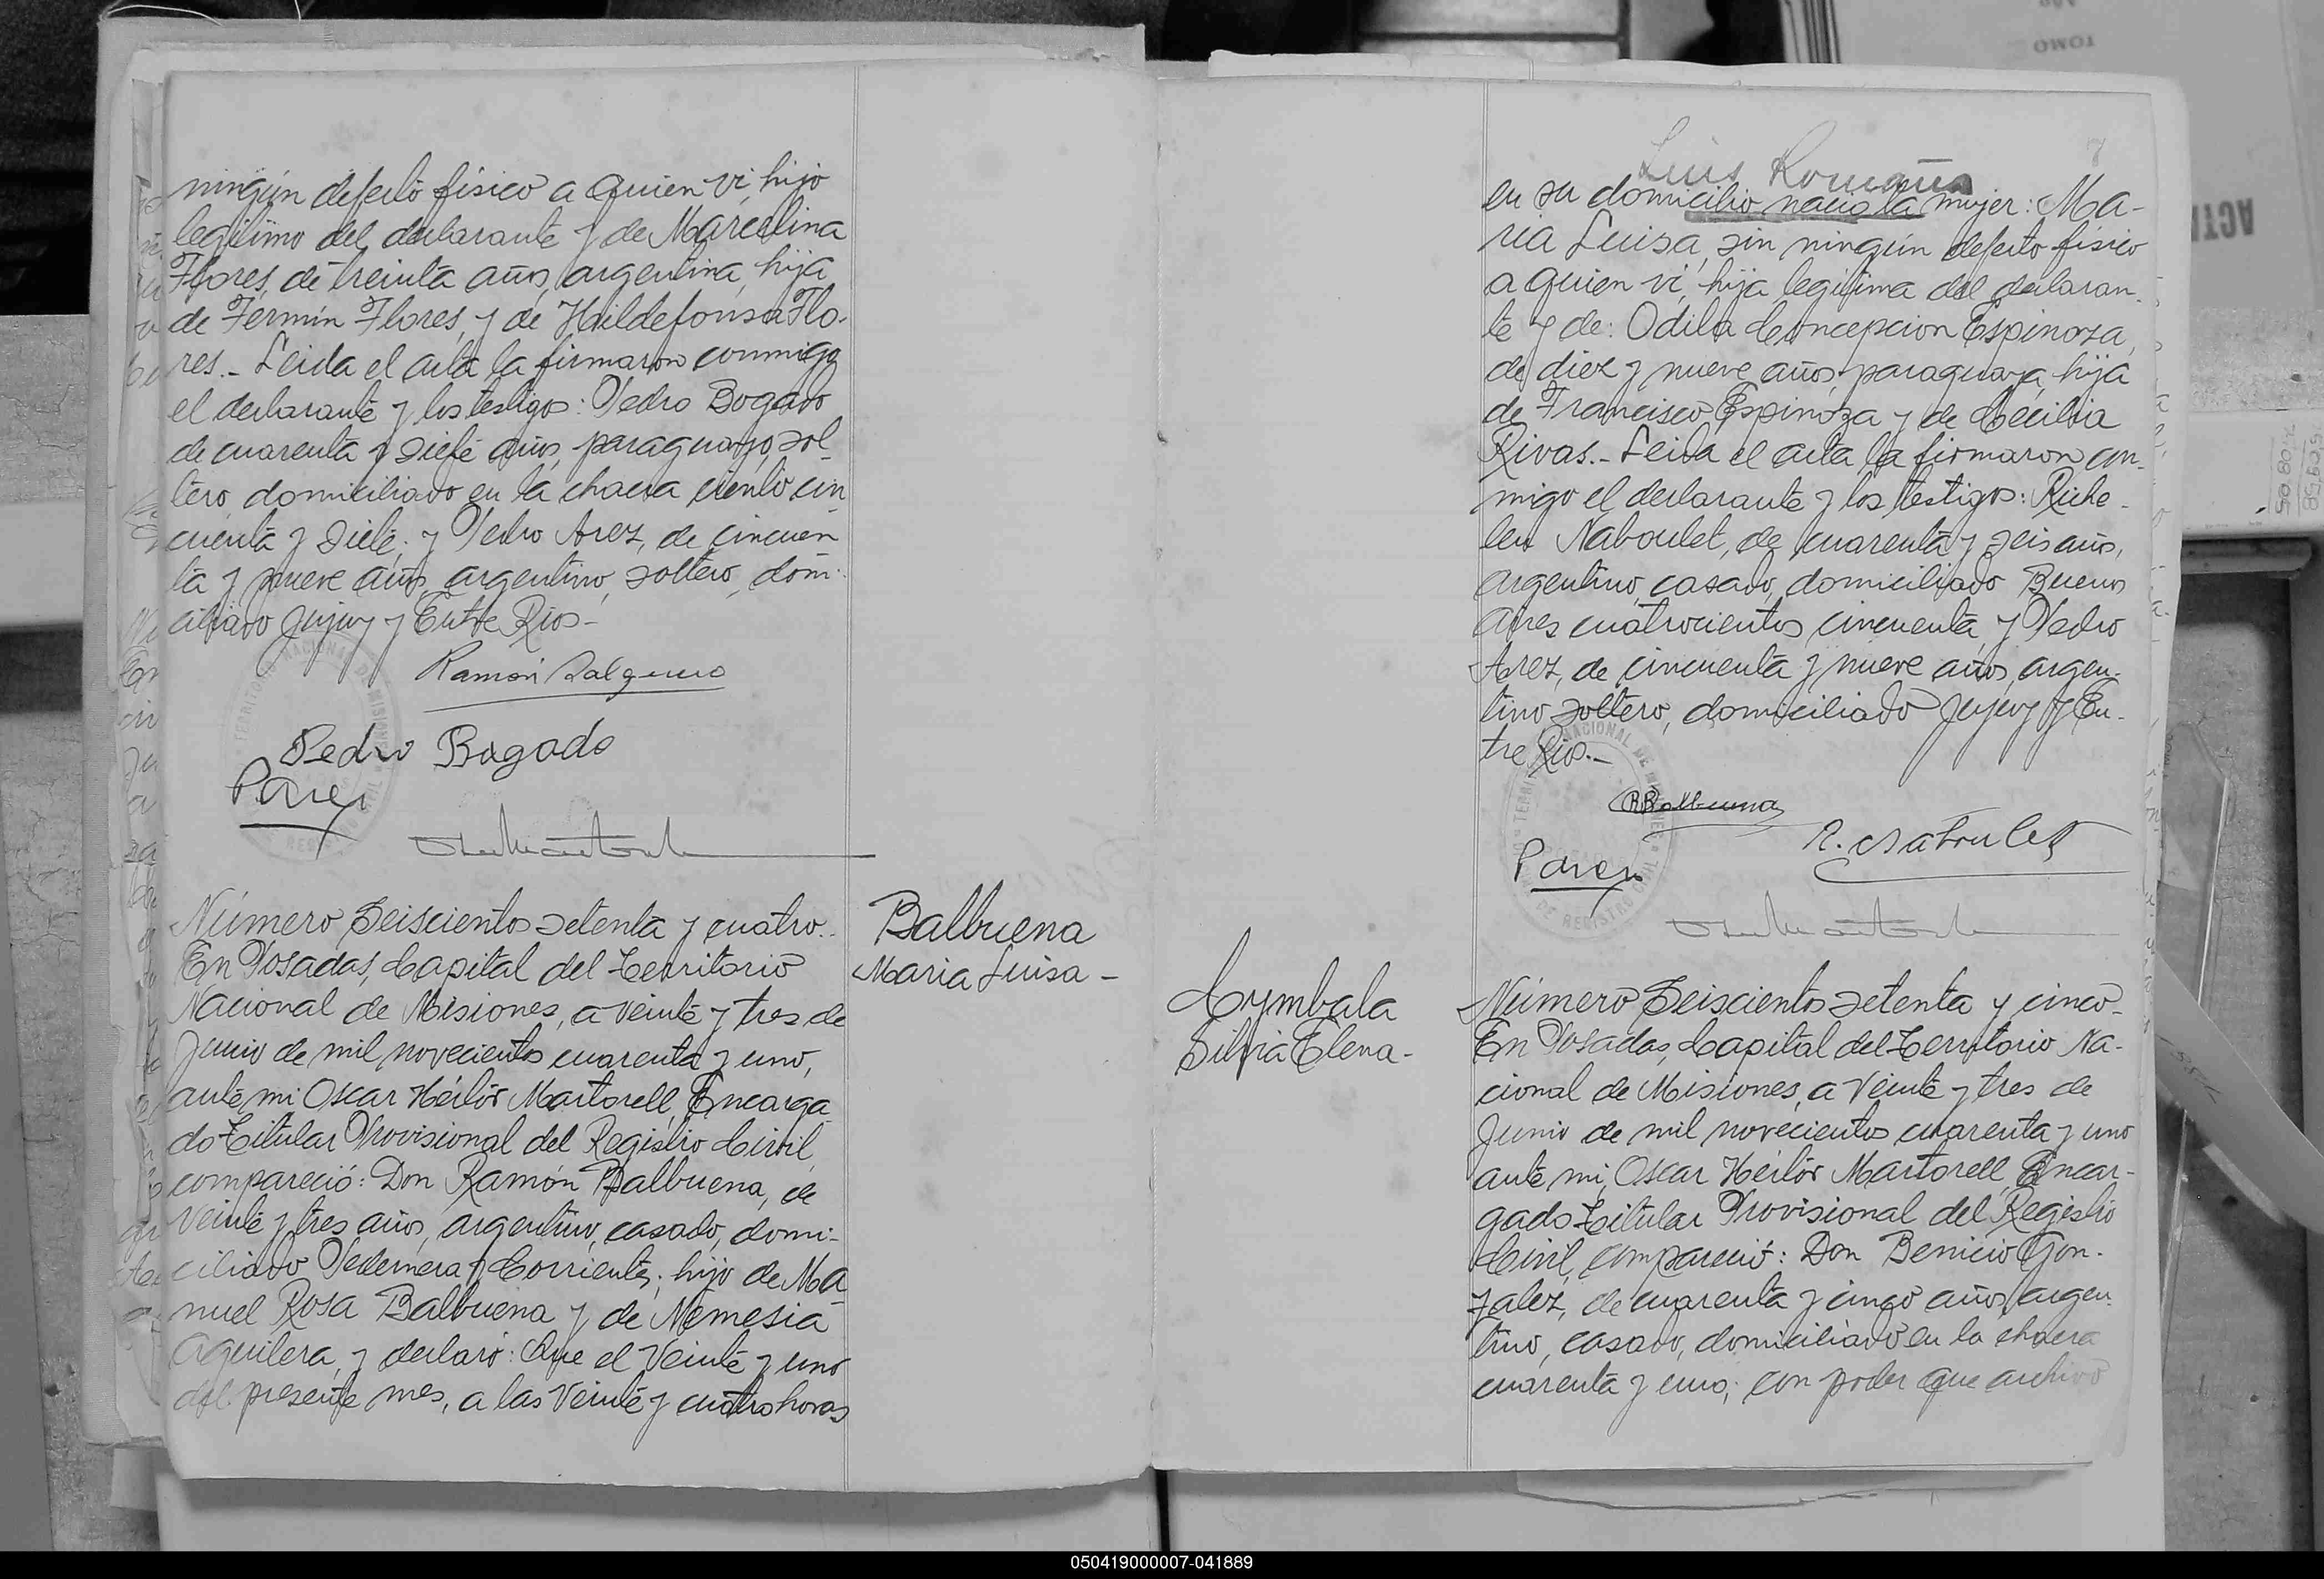 ningún defecto físico a quien vi, hijo
legítimo del declarante y de Marcelina
Flores, de treinta años, argentina, hija
de Fermín Flores, y de Hildefonsa Flo-
res.- Leida el acta la firmaron conmigo
el declarante y los testigos: Pedro Bogado
de cuarenta y siete años, paraguayo, sol-
tero, domiciliado en la chacra ciento cin
cuenta y siete; y Pedro Arez, de cincuen
ta y nueve años, argentino, soltero, domi-
ciliado Jujuy y Entre Rios-
Ramón Salguero
Pedro Bogado
P. Arez
Número Seiscientos setenta y cuatro.-
En Posadas, Capital del Territorio
Nacional de Misiones, a veinte y tres de
Junio de mil novecientos cuarenta y uno,
ante mi Oscar Héctor Martorell, Encarga
do Titular Provisional del Registro Civil,
compareció: Don Ramón Balbuena, de
veinte y tres años, argentino, casado, domi-
ciliado Pedernera y Corrientes; hijo de Ma
nuel Rosa Balbuena y de Nemesia
Aguilera, y declaró: Que el veinte y uno
del presente mes, a las veinte y cuatro horas
Balbuena
Maria Luisa-
Luis Romaña
en su domicilio nació la mujer: Ma-
ria Luisa, sin ningún defecto físico
a quien vi, hija legítima del declaran-
te y de: Odila Concepcion Espinoza,
de diez y nueve años, paraguaya, hija
de Francisco Espinoza y de Cecilia
Rivas.- Leida el acta la firmaron con-
migo el declarante y los testigos: Riche-
leu Naboulet, de cuarenta y seis años,
argentino, casado, domiciliado Buenos
Aires cuatrocientos cincuenta y Pedro
Arez, de cincuenta y nueve años, argen-
tino soltero, domiciliado Jujuy y En-
tre Rios.-
RBalbuena
R. Naboulet
P. Arez
Cymbala
Silvia Elena-
Número Seiscientos setenta y cinco-
En Posadas, Capital del Territorio Na-
cional de Misiones, a veinte y tres de
Junio de mil novecientos cuarenta y uno
ante mi, Oscar Héctor Martorell, Encar-
gado Titular Provisional del Registro
Civil, compareció: Don Benicio Gon-
zalez, de cuarenta y cinco años, argen-
tino, casado, domiciliado en la chacra
cuarenta y uno; con poder que archivo
TOMO
050419000007-041889